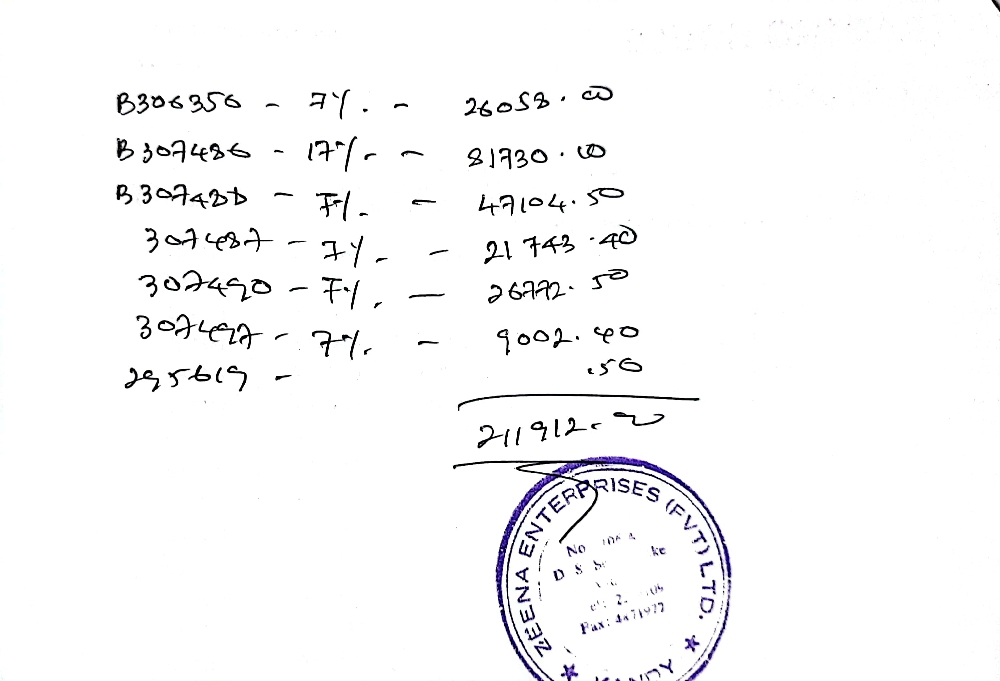 B306356 - 7%. - 26058.00
B307486 - 17%. - 81730.00
B307488 - 7%. - 47104.50
307487 - 7%. - 21743.40
307490 - 7%. - 26772.50
307497 - 7%. - 9002.40
295619 - .50
211912.00
ZEENA ENTERPRISES (PVT) LTD.
No
D S ke
Fax: 4471977
KANDY